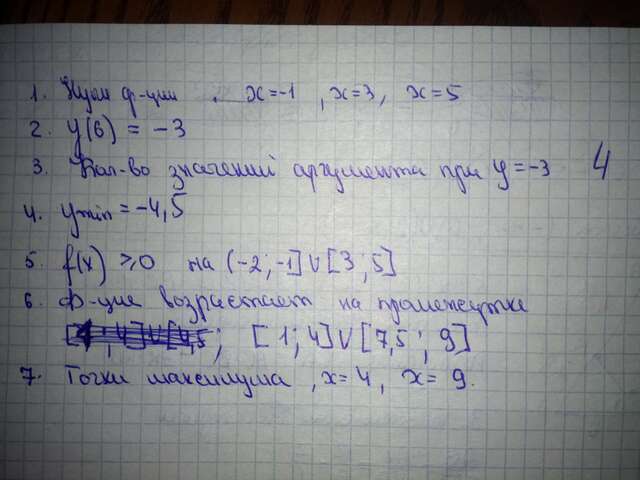 1. Нули ф-ции , x=-1, x=3, x=5
2. y(6) = -3
3. кол-во значений аргумента при y=-3 4
4. ymin = -4,5
5. f(x) >0 на (-2;-1]∪[3;5]
6. Ф-ция возрастает на промежутке
[1; 4]∪[7,5; 9]
7. Точки максимума , x=4, x=9.